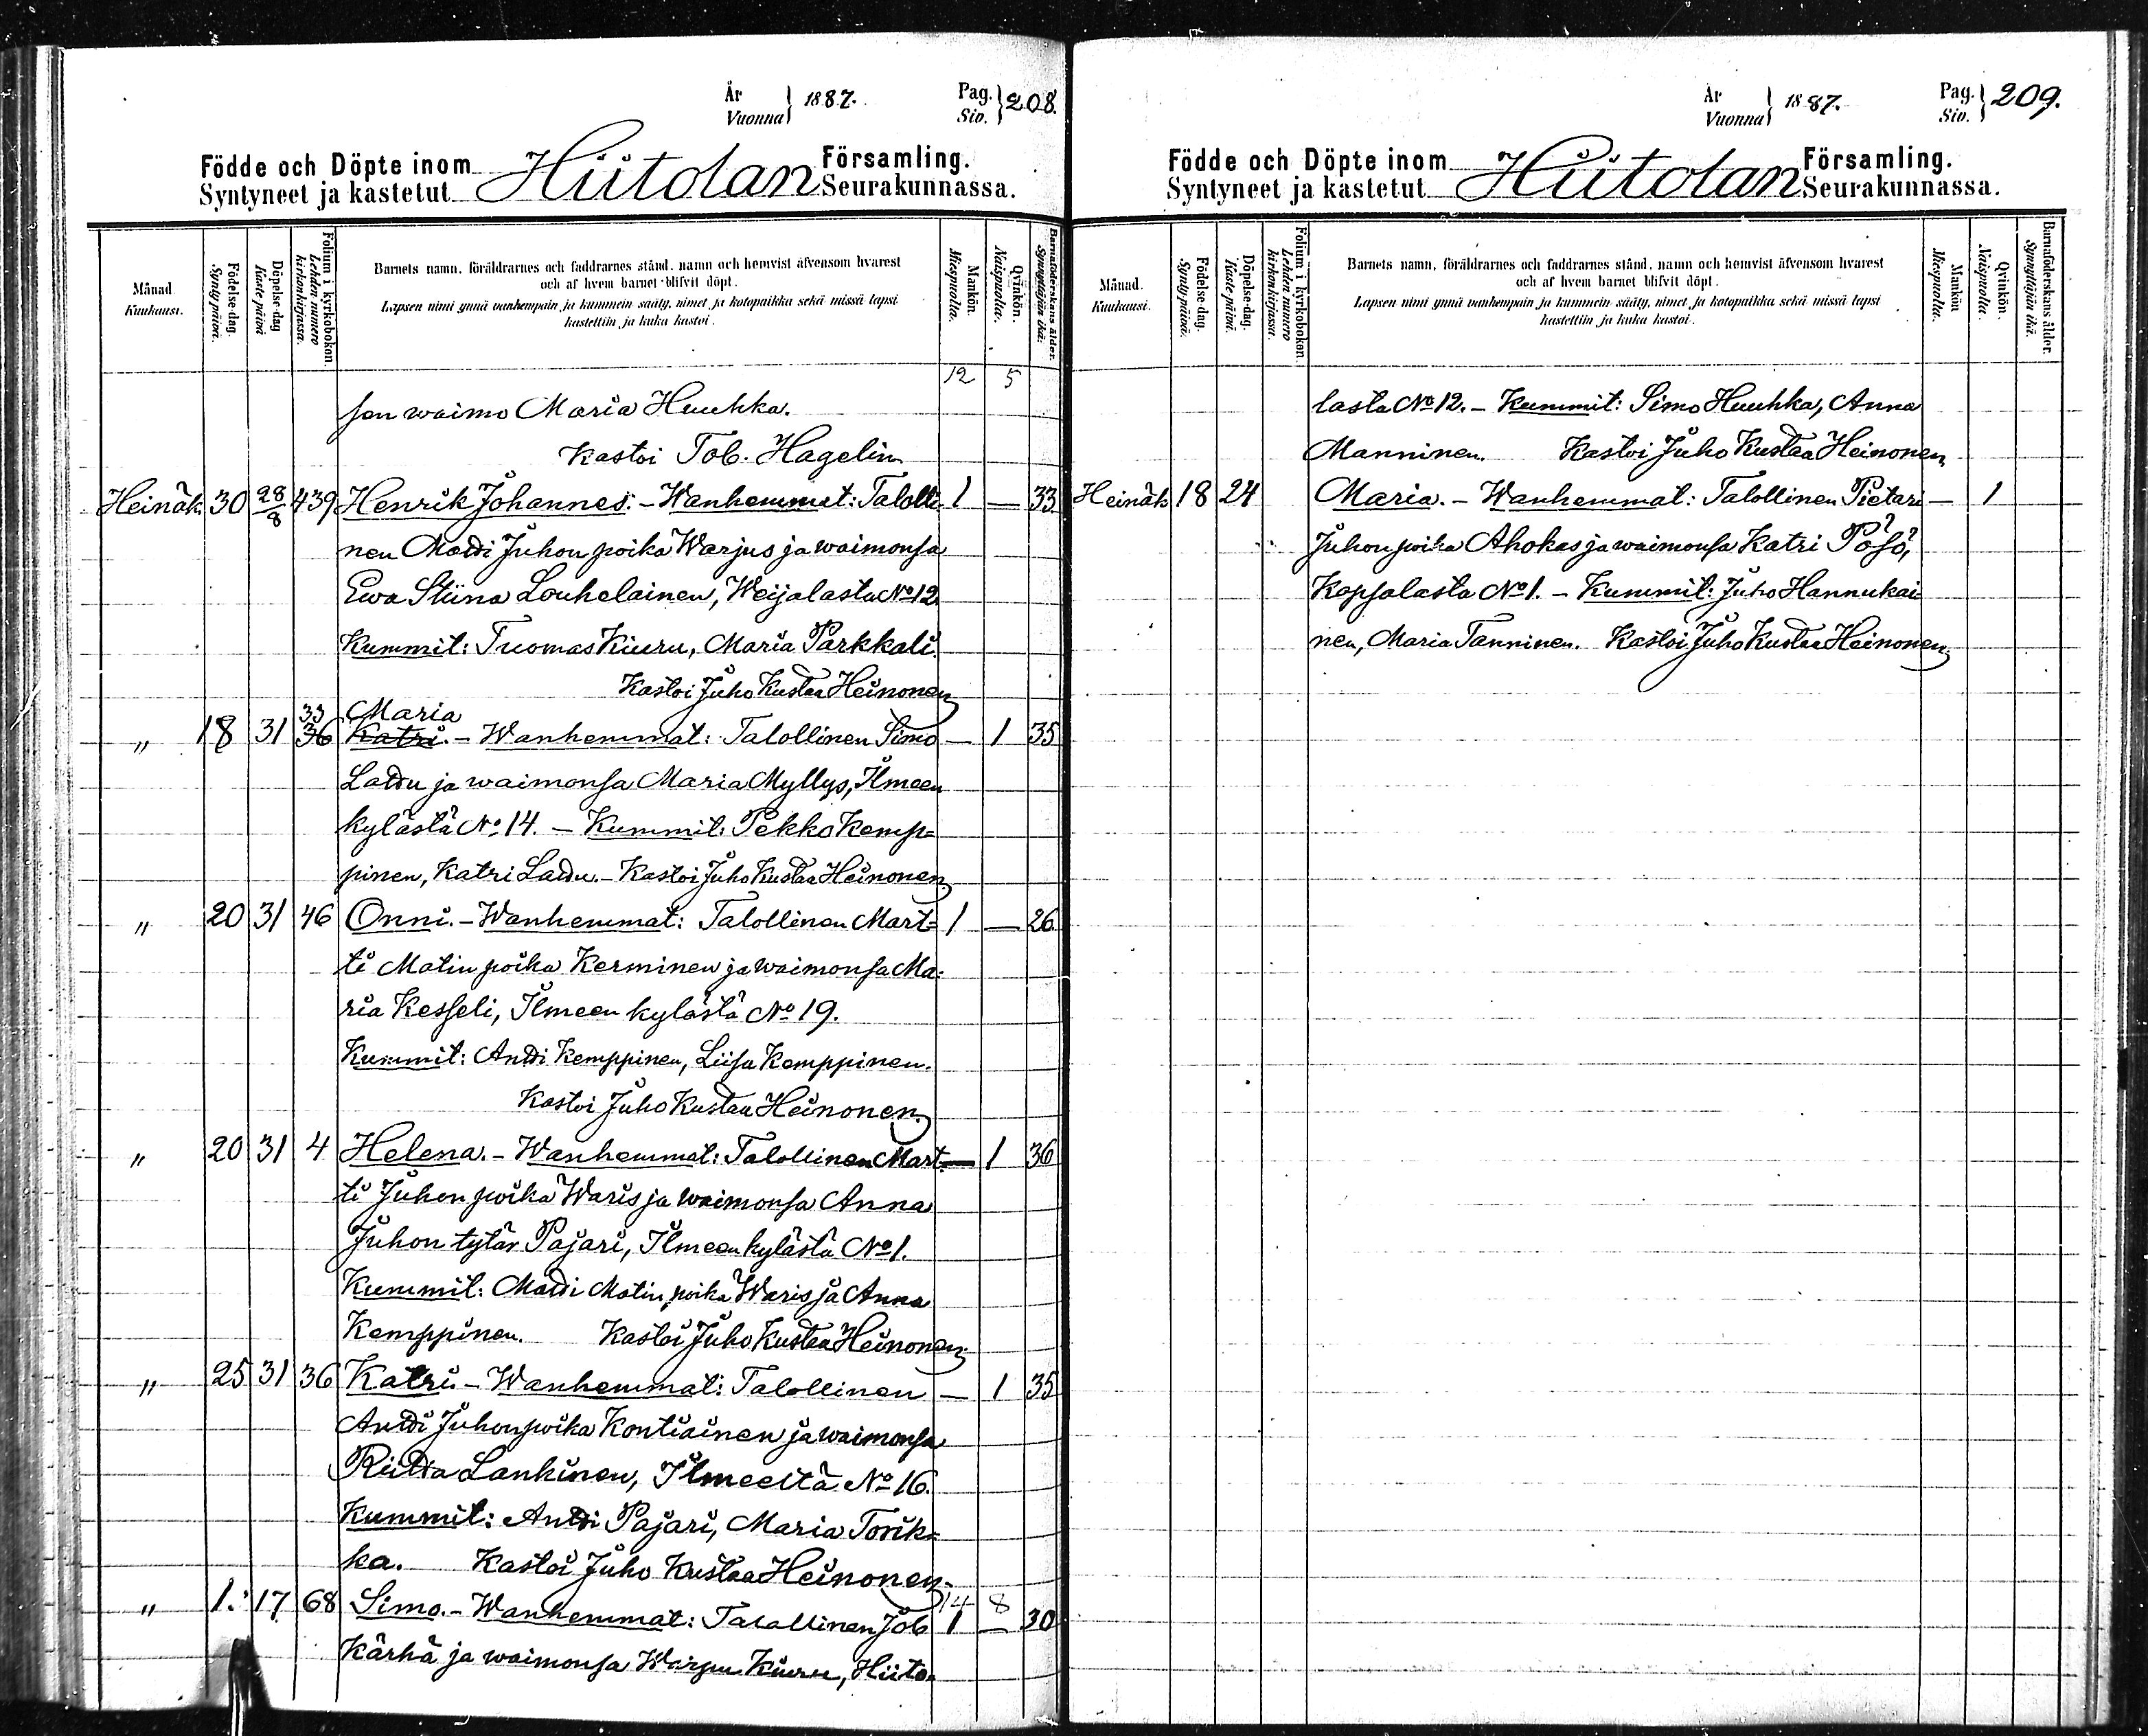 År
Vuonna } 1887.
Pag.
Siv. } 208.
Födde och Döpte inom Hiitolan Församling.
Syntyneet ja kastetut Seurakunnassa.
Månad. Kuukausi.
Födelse-dag. Synty päivä.
Döpelse-dag Kaste päivä
Folium i kyrkobokon. Lehden numero kirkonkirjassa.
Barnets namn, föräldrarnes och faddrarnes stånd, namn och hemvist äfvensom hvarest
och af hvem barnet blifvit döpt.
Lapsen nimi ynnä vanhempain ja kummein sääty, nimet ja kotopaikka sekä missä lapsi
kastettiin ja kuka kastoi.
Mankön. Miespuolta.
Qvinkön. Naispuolta.
Barnaföderskans ålder. Synnyttäjän ikä.
12 5
sen waimo Maria Huuhka.
Kastoi Tob. Hagelin
Heinäk. 30 28/8 439 Henrik Johannes. - Wanhemmat: Talolli- 1 — 33
nen Matti Juhon poika Warjus ja waimonsa
Ewa Stiina Louhelainen, Weijalasta No 12.
Kummit: Tuomas Kiuru, Maria Parkkali.
Kastoi Juho Kustaa Heinonen
33 Maria
" 18 31 36 Katri. - Wanhemmat: Talollinen Simo — 1 35
Lattu ja waimonsa Maria Myllys, Ilmeen
kylästä No 14. - Kummit: Pekko Kemp=
pinen, Katri Lattu. - Kastoi Juho Kustaa Heinonen
" 20 31 46 Onni. - Wanhemmat: Talollinen Mart= 1 — 26
ti Matin poika Kerminen ja waimonsa Ma=
ria Kesseli, Ilmeen kylästä No 19.
Kummit: Antti Kemppinen, Liisa Kemppinen.
Kastoi Juho Kustaa Heinonen.
" 20 31 4 Helena. - Wanhemmat: Talollinen Mart- — 1 36
ti Juhon poika Waris ja waimonsa Anna
Juhon tytär Pajari, Ilmeen kylästä No 1.
Kummit: Matti Matin poika Waris ja Anna
Kemppinen. Kastoi Juho Kustaa Heinonen.
" 25 31 36 Katri - Wanhemmat: Talollinen — 1 35
Antti Juhonpoika Kontiainen ja waimonsa
Riitta Lankinen, Ilmeeltä No 16.
Kummit: Antti Pajari, Maria Torik=
ka. Kastoi Juho Kustaa Heinonen.
14 8
" 1. 17 68 Simo. - Wanhemmat: Talollinen Job 1 — 30
Kärhä ja waimonsa Warpu Kiuru, Hiito-
År
Vuonna } 1887.
Pag.
Siv. } 209.
Födde och Döpte inom Hiitolan Församling.
Syntyneet ja kastetut Seurakunnassa.
Månad. Kuukausi.
Födelse-dag. Synty päivä.
Döpelse-dag. Kaste päivä.
Folium i kyrkobokon. Lehden numero kirkonkirjassa.
Barnets namn, föräldrarnes och faddrarnes stånd, namn och hemvist äfvensom hvarest
och af hvem barnet blifvit döpt.
Lapsen nimi ynnä vanhempain ja kummein sääty, nimet ja kotopaikka sekä missä lapsi
kastettiin ja kuka kastoi.
Mankön. Miespuolta.
Qvinkön. Naispuolta.
Barnaföderskans ålder. Synnyttäjän ikä.
lasta No 12. - Kummit: Simo Huuhka, Anna
Manninen. Kastoi Juho Kustaa Heinonen
Heinäk 18 24 Maria. - Wanhemmat: Talollinen Pietari — 1
Juhonpoika Ahokas ja waimonsa Katri Pösö,
Kopsalasta No 1. - Kummit: Juho Hannukai-
nen, Maria Tanninen. Kastoi Juho Kustaa Heinonen.